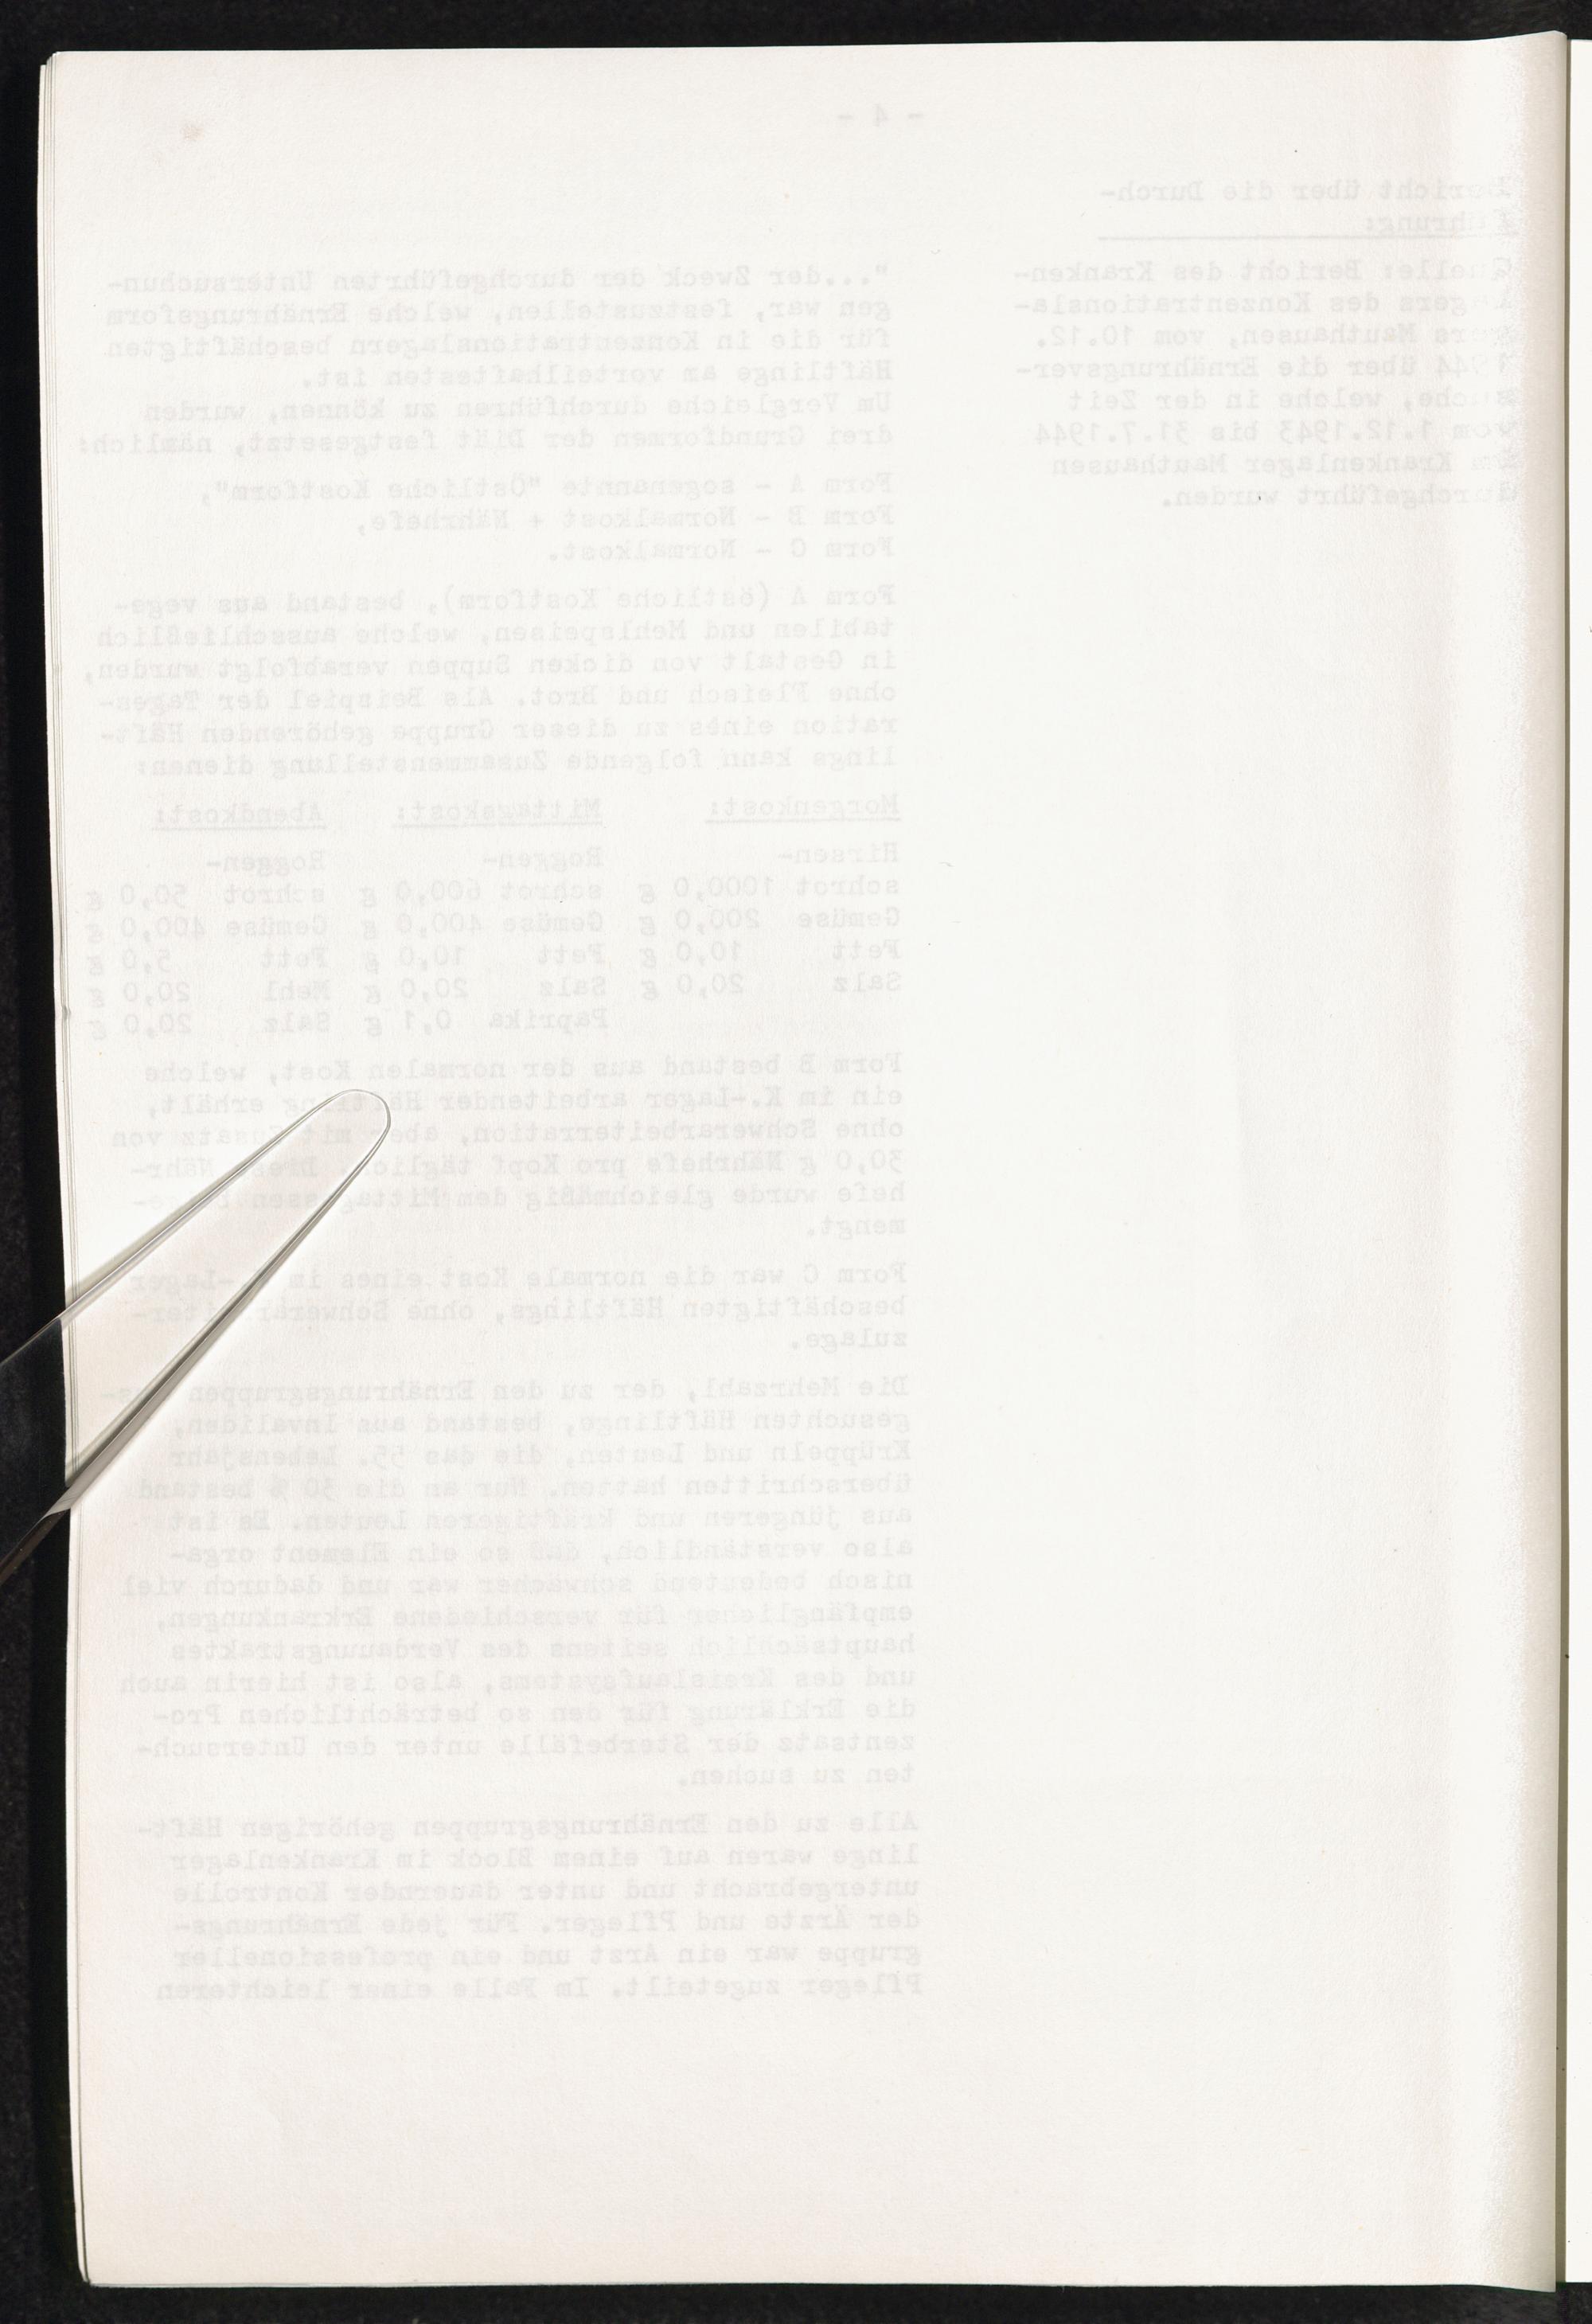 - 4 -
Bericht über die Durch-
führung:
Quelle: Bericht des Kranken-
lagers des Konzentrationsla-
gers Mauthausen, vom 10.12.
1944 über die Ernährungsver-
suche, welche in der Zeit
vom 1.12.1943 bis 31.7.1944
im Krankenlager Mauthausen
durchgeführt wurden.
"...der Zweck der durchgeführten Untersuchun-
gen war, festzustellen, welche Ernährungsform
für die in Konzentrationslagern beschäftigten
Häftlinge am vorteilhaftesten ist.
Um Vergleiche durchführen zu können, wurden
drei Grundformen der Diät festgesetzt, nämlich:
Form A - sogenannte "Östliche Kostform",
Form B - Normalkost + Nährhefe,
Form C - Normalkost.
Form A (östliche Kostform), bestand aus vege-
tabilen und Mehlspeisen, welche ausschließlich
in Gestalt von dicken Suppen verabfolgt wurden,
ohne Fleisch und Brot. Als Beispiel der Tages-
ration eines zu dieser Gruppe gehörenden Häft-
lings kann folgende Zusammenstellung dienen:
Morgenkost: Mittagskost: Abendkost:
Hirsen- Roggen- Roggen-
schrot 1000,0 g schrot 600,0 g schrot 50,0 g
Gemüse 200,0 g Gemüse 400,0 g Gemüse 400,0 g
Fett 10,0 g Fett 10,0 g Fett 5,0 g
Salz 20,0 g Salz 20,0 g Mehl 20,0 g
Paprika 0,1 g Salz 20,0 g
Form B bestand aus der normalen Kost, welche
ein im K.-Lager arbeitender Häftling erhält,
ohne Schwerarbeiterration, aber mit Zusatz von
30,0 g Nährhefe pro Kopf täglich. Diese Nähr-
hefe wurde gleichmäßig dem Mittagessen beige-
mengt.
Form C war die normale Kost eines im K.-Lager
beschäftigten Häftlings, ohne Schwerarbeiter-
zulage.
Die Mehrzahl, der zu den Ernährungsgruppen aus-
gesuchten Häftlinge, bestand aus Invaliden,
Krüppeln und Leuten, die das 55. Lebensjahr
überschritten hatten. Nur an die 30 % bestand
aus jüngeren und kräftigeren Leuten. Es ist
also verständlich, daß so ein Element orga-
nisch bedeutend schwächer war und dadurch viel
empfänglicher für verschiedene Erkrankungen,
hauptsächlich seitens des Verdauungstraktes
und des Kreislaufsystems, also ist hierin auch
die Erklärung für den so beträchtlichen Pro-
zentsatz der Sterbefälle unter den Untersuch-
ten zu suchen.
Alle zu den Ernährungsgruppen gehörigen Häft-
linge waren auf einem Block im Krankenlager
untergebracht und unter dauernder Kontrolle
der Ärzte und Pfleger. Für jede Ernährungs-
gruppe war ein Arzt und ein professioneller
Pfleger zugeteilt. Im Falle einer leichteren